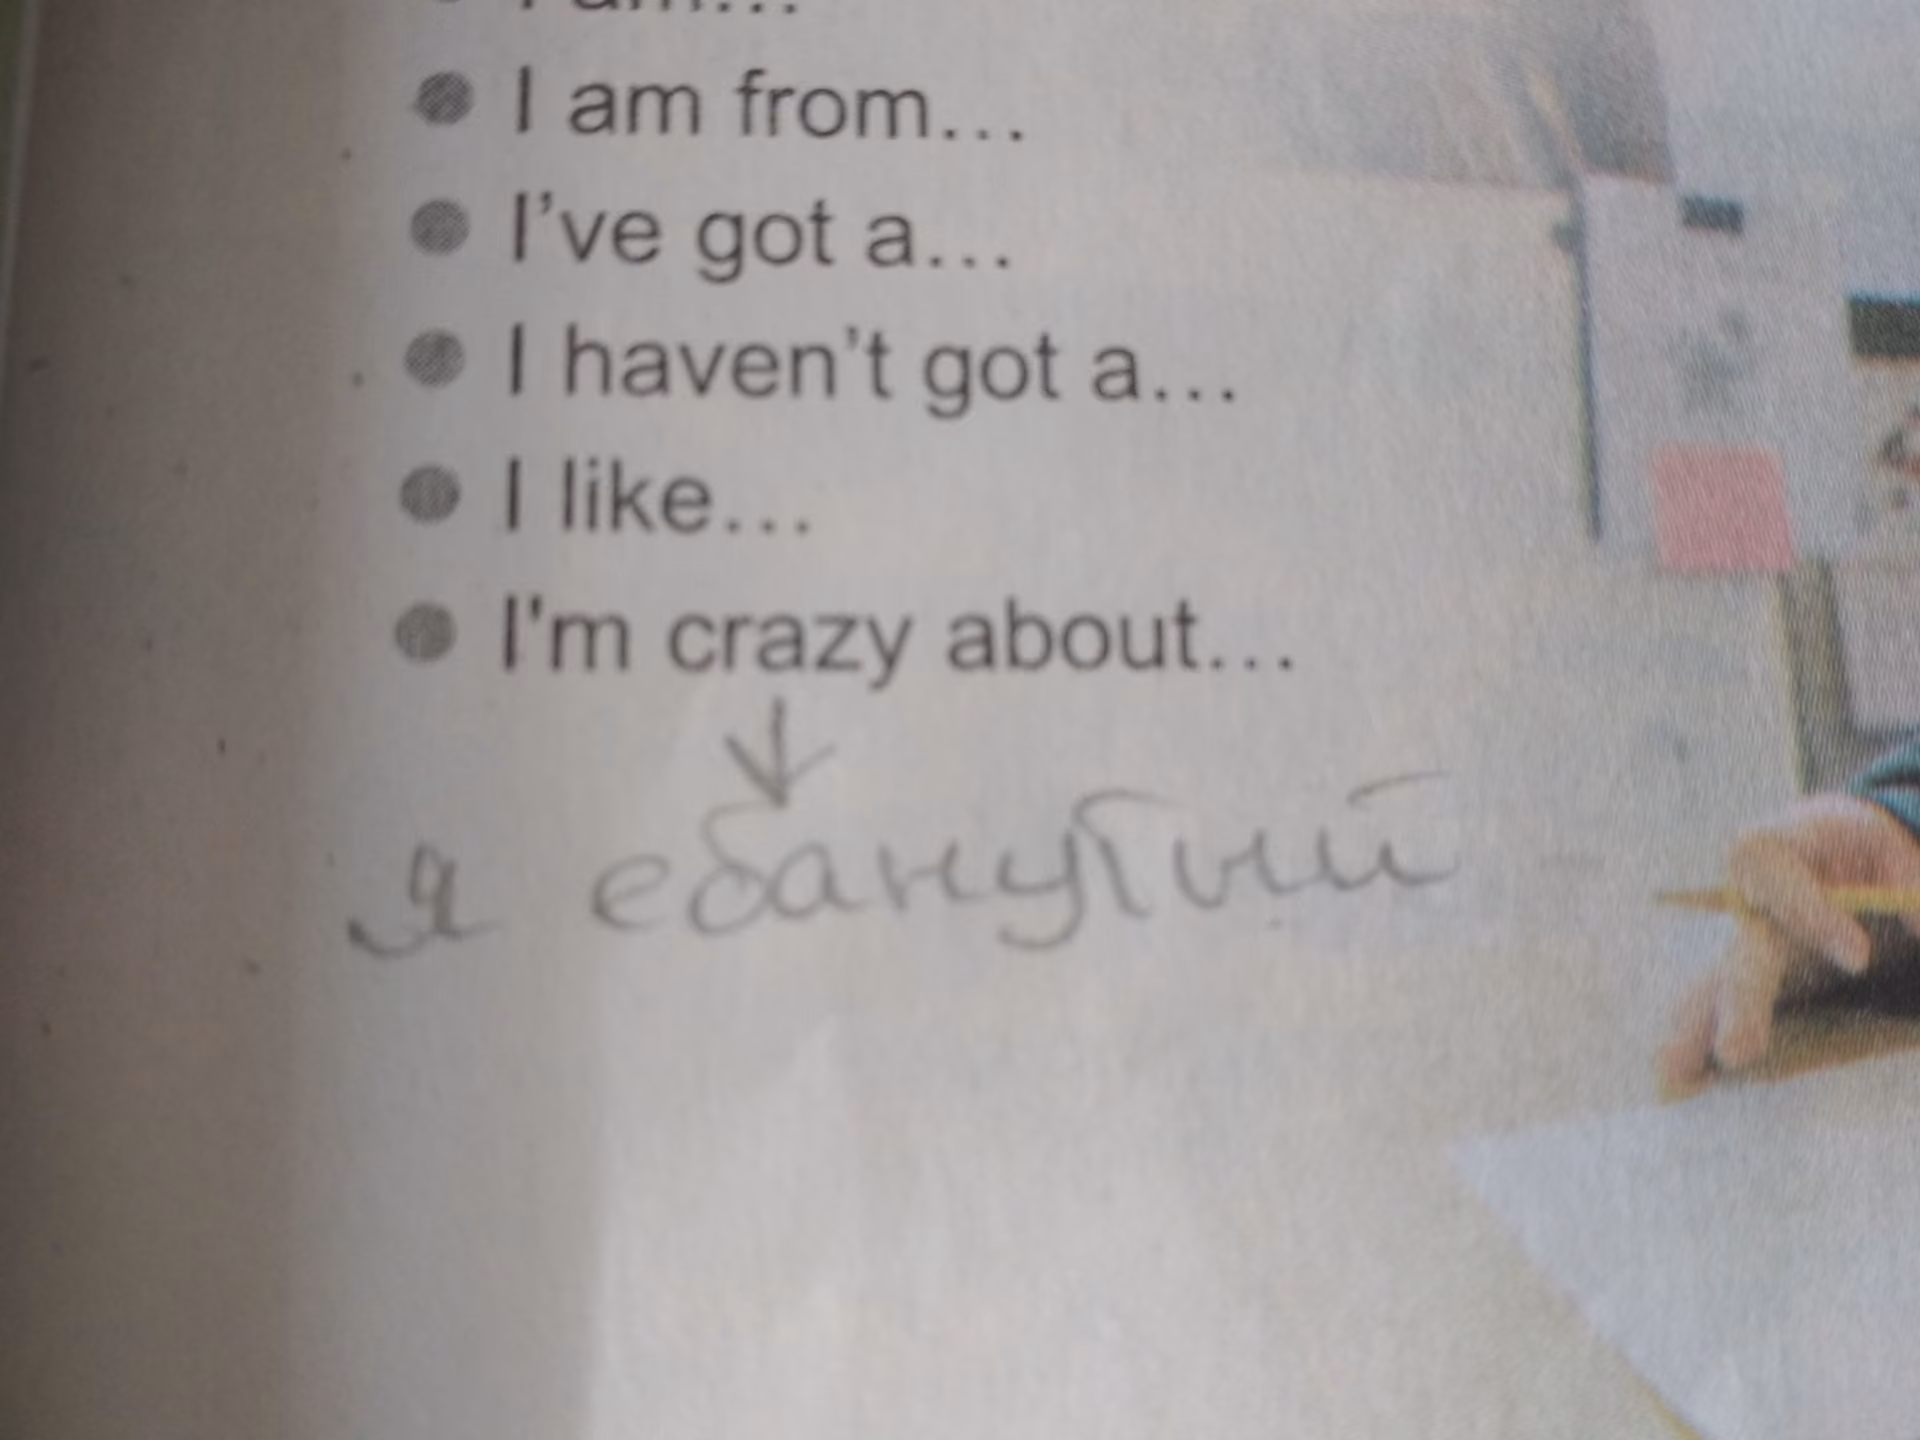 I am...
● I am from...
● I've got a...
● I haven't got a...
● I like...
● I'm crazy about...
я ебанутый